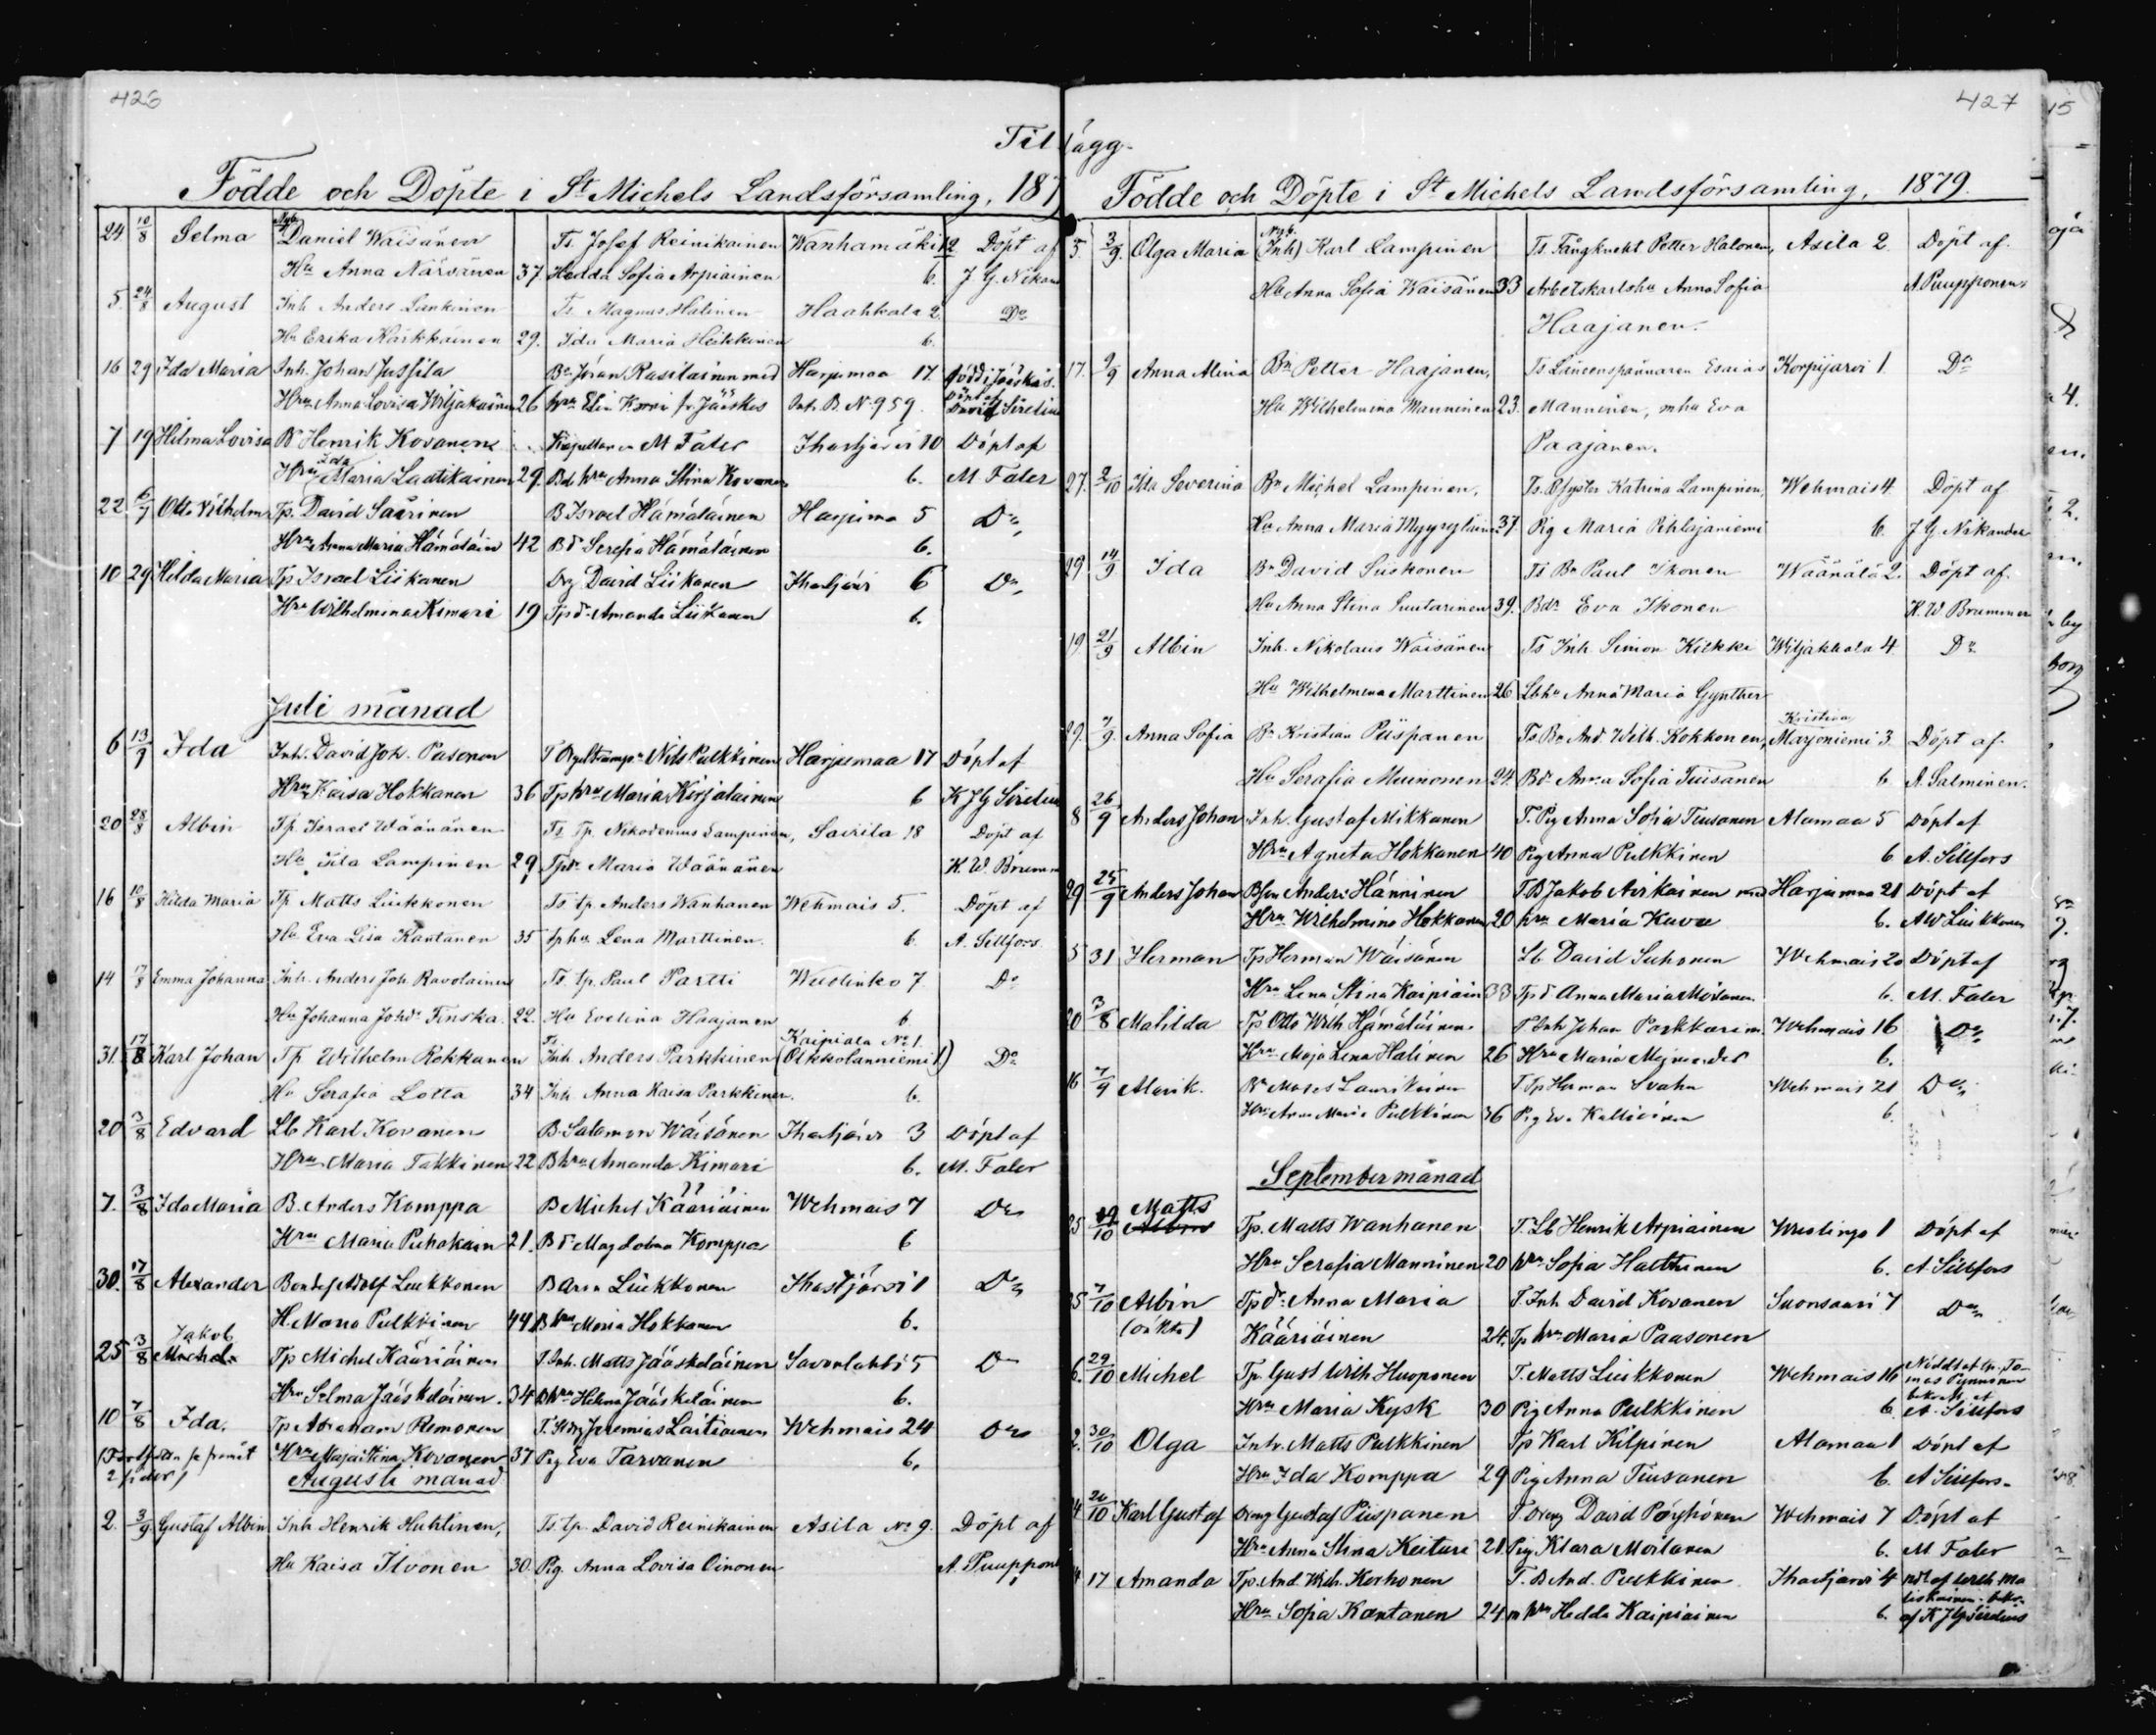 426
Til
Födde och Döpte i St Michels Landsförsamling, 187
24 10/8 Selma Nyb. Daniel Waisänen Ts. Josef Reinikainen Wanhamäki 12 Döpt af
Hu Anna Närvänen 37. Hedda Sofia Arpiainen 6. J. G. Nikan
5. 24/8 August Inh. Anders Lankinen Ts. Magnus Halinen Haahkala 2. Do
Hu Erika Kärkkäinen 29. Ida Maria Heikkinen 6.
16 29 Ida Maria Inh. Johan Jussila Bn Jöran Rasilainen med Harjumaa 17. född i Jääskis.
Hru Anna Lovisa Wiljakainen 26 hru Elin fr Jääskes Int. B. No 959. Döpt af David Sirelius
7 19 Hilma Lovisa B Henrik Kovanen M Faler Ihastjärvi 10 Döpt af
Hru Ida Maria Laitikainen 29. Bd hru Anna Stina Kovanen 6. M Faler
22 6/7 Otto Vilhelm Tp. David Saarinen B Israel Hämäläinen Harjuma 5 Do
Hru Anna Maria Hämäläin 42 Bd Serefia Hämäläinen 6.
10 29 Hilda Maria Tp Israel Liikanen Drg David Liikanen Ihastjärvi 6 Do
Hru Wilhelmina Kimari 19 Tpd Amanda Liikanen 6.
Juli månad
6 13/7 Ida Inh. David Joh. Pasonen Nils Pulkkinen Harjumaa 17 Döpt af
Hru Kaisa Hokkanen 36 Tp hru Maria Kirjalainen 6 K J G Sirelius
20 28/8 Albin Tp. Israel Wäänänen Ts. Tp. Nikodemus Lampinen, Sairila 18 Döpt af
Hu Lampinen 29 Tpdr Maria Wäänänen K. W. Brumm
16 10/8 Hilda Maria Tp Matts Liukkonen Ts tp. Anders Wanhanen Wehmais 5. Döpt af
Hu Eva Lisa Rantanen 35 tphu Lena Marttinen. 6. A. Sillfors
14 17/8 Emma Johanna Inh. Anders Joh Ravolainen Ts. tp. Paul Partti Wuolinko 7. Do
Hu Johanna Johdr Finska. 22. Hu Evelina Haajanen 6
31. 17/8 Karl Johan Tp. Wilhelm Rokkanen Ts Inh Anders Parkkinen Kaipiala No 1. (Olkkolanniemi 1) Do
Hu Serafia Lotta 34 Inh. Anna Kaisa Parkkinen. 6.
20 3/8 Edvard Lb Karl Kovanen B Salomon Wäisänen Ihastjärvi 3 Döpt af
Hru Maria Takkinen 22 B hru Amanda Kimari 6. M. Faler
7. 3/8 Ida Maria B. Anders Komppa B Michel Kääriäinen Wehmais 7 Do
Hru Maria Puhakain 21. Bd Magdalena Komppa 6
30. 17/8 Alexander Bonde Adolf Liukkonen B Aron Liukkonen Ihastjärvi 1 Do
H. Maria Pulkkinen 44 B hru Maria Hokkanen 6.
25 3/8 Jakob Michel Tp Michel Kääriäinen T. Inh. Matts Jääskeläinen Savonlahti 5 Do
Hru Selma Jääskeläinen. 34 B hru Helena Jääskeläinen 6.
10 7/8 Ida. Tp Abraham Romonen T. Jeremias Laitiainen Wehmais 24 Do
Hru Maja Stina Kovanen 37 Pig Eva Tarvanen 6.
Augusti månad
2. 3/9 Gustaf Albin Inh Henrik Huhtinen, Ts. tp. David Reinikainen Asila No 9. Döpt af
Hu Kaisa Ilvonen 30. Pig. Anna Lovisa Oinonen A. Puuppon
427
lägg.
Födde och Döpte i St Michels Landsförsamling, 1879.
5. 3/9. Olga Maria Nyb. (Inh) Karl Lampinen Ts Fångknekt Petter Halonen, Asila 2 Döpt af.
Hu Anna Sofia Waisänen 33 Arbetskarlshu Anna Sofia A. Puupponen.
Haajanen.
17. 9/9 Anna Alina Bn Petter Haajanen, Ts Esaias Korpijärvi 1 Do
Hu Wilhelmina Manninen 23. Manninen, mhu Eva
Paajanen.
27. 2/10 Ida Severina Bn Michel Lampinen, Ts. Katrina Lampinen, Wehmais 4. Döpt af
Hu Anna Maria 37. Pig Maria Pihlajaniemi 6. J G Nikander
29. 14/9 Ida Bn David Siikonen Ts Bn Paul Ikonen Wäänälä 2. Döpt af.
Hu Anna Stina Suutarinen 39. Bdr Eva Ikonen K. W. Brummer
19. 21/9 Albin Inh. Nikolaus Wäisänen Ts Inh Simon Kiikki Wiljakkala 4. Do
Hu Wilhelmina Marttinen 26 Lbhu Anna Maria Gynther
29. 7/9. Anna Sofia Bn Kristian Piispanen Ts Bn And. Wilh. Kokkonen, Kristina Marjoniemi 3. Döpt af.
Hu Serafia Muinonen 24. Bdr Anna Sofia Tuisanen 6 A. Salminen.
8 26/9 Anders Johan Inh. Gustaf Mikkanen T. Pig Anna Sofia Tiusanen Alamaa 5 Döpt af
Hru Agneta Hokkanen 40 Pig Anna Pulkkinen 6 A. Sillfors
29 25/9 Anders Johan Bson Anders Hänninen T. B Jakob Avikainen med Harjumaa 21 Döpt af
Hru Wilhelmina Hokkanen 20 hru Maria Kava 6. A W Liukkonen
5 31 Herman Tp Herman Wäisänen Lb David Suhonen Wehmais 20 Döpt af
Hru Lena Stina Kaipiain 33 Tpd Anna Maria Moilanen 6. M. Faler
20 3/8 Mathilda Tp Otto Wilh Hämäläinen T. Inh Johan Parkkarinen Wehmais 16 Do
Hru Maja Lena Halinen 26 Hru Maria 6.
16 7/9 Alarik. Bn Moses Laurikainen T. Tp Herman Svahn Wehmais 21 Do
Hru Anna Maria Pulkkinen 36 Pig Eva 6.
September månad
25 10 Matts Albin Tp. Matts Wanhanen T. Lb Henrik Arpiainen Wuolingo 1 Döpt af
Hru Serafia Manninen 20 hru Sofia Halttunen 6. A. Sillfors
25 7/10 Albin (oäkta) Tpdr Anna Maria T. Inh David Kovanen Suonsaari 7 Do
Kääriäinen 24. Tp hru Maria Paasonen
6. 29/10 Michel Tp. Gust Wilh Huoponen T. Matts Liukkonen Wehmais 16 Nöddöpt Tomas Pynninen
Hru Maria Kysk 30 Pig Anna Pulkkinen 6 A. Sillfors
2. 30/10 Olga Inh. Matts Pulkkinen Tp Karl Kilpinen Alamaa 1 Döpt af
Hru Ida Komppa 29 Pig Anna Tiusanen 6. A Sillfors.
4 20/10 Karl Gustaf Dreng Gustaf Piispanen T. Dreng David Pöyhönen Wehmais 7 Döpt af
Hru Anna Stina Keituri 21. Pig Klara Moilanen 6. M. Faler
4 17 Amanda Tp. And. Wilh. Korhonen T. B And. Pulkkinen Ihastjärvi 4
Hru Sofia Kantanen 24. m hru Hedda Kaipiainen 6. af K J G Sirelius
15